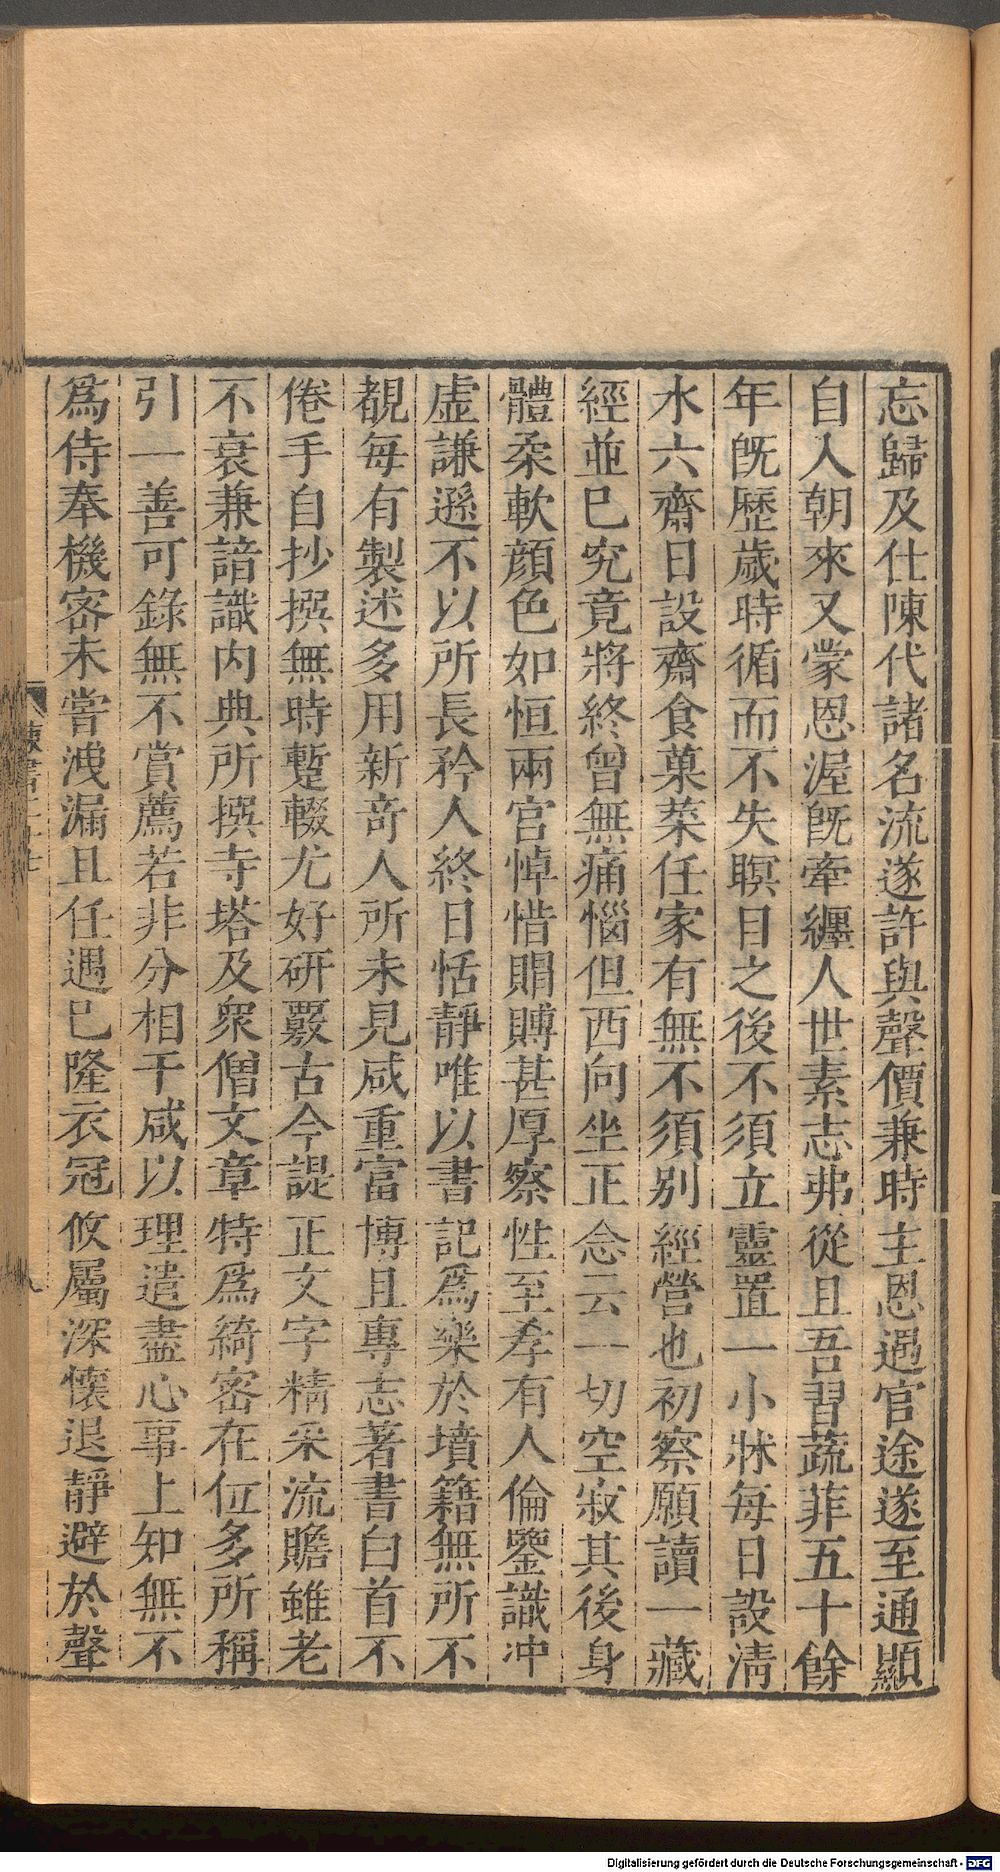 忘歸及仕陳代諸名流遂許與聲價兼時主恩遇官途遂至通顯
自入朝來又蒙恩渥旣牽纏人世素志弗從且吾習蔬菲五十餘
年旣歷歲時循而不失瞑目之後不須立靈置一小牀每日設淸
水六齋日設齋食菓菜任家有無不須別經營也初察願讀一藏
經並已究竟將終曾無痛惱但西向坐正念云一切空寂其後身
體柔軟顏色如恒兩宮悼惜賵賻甚厚察性至孝有人倫鑒識冲
虛謙遜不以所長矜人終日恬靜唯以書記爲樂於墳籍無所不
覩每有製述多用新奇人所未見咸重富博且專志著書白首不
倦手自抄撰無時蹔輟尤好硏覈古今諟正文字精采流贍雖老
不衰兼諳識內典所撰寺塔及衆僧文章特爲綺密在位多所稱
引一善可錄無不賞薦若非分相干咸以理遣盡心事上知無不
爲侍奉機密未嘗洩漏且任遇已隆衣冠攸屬深懷退靜避於聲
Digitalisierung gefördert durch die Deutsche Forschungsgemeinschaft - DFG